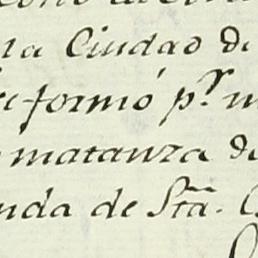 la Ciudad de
formó pr.
matanza de
nda de Sta.